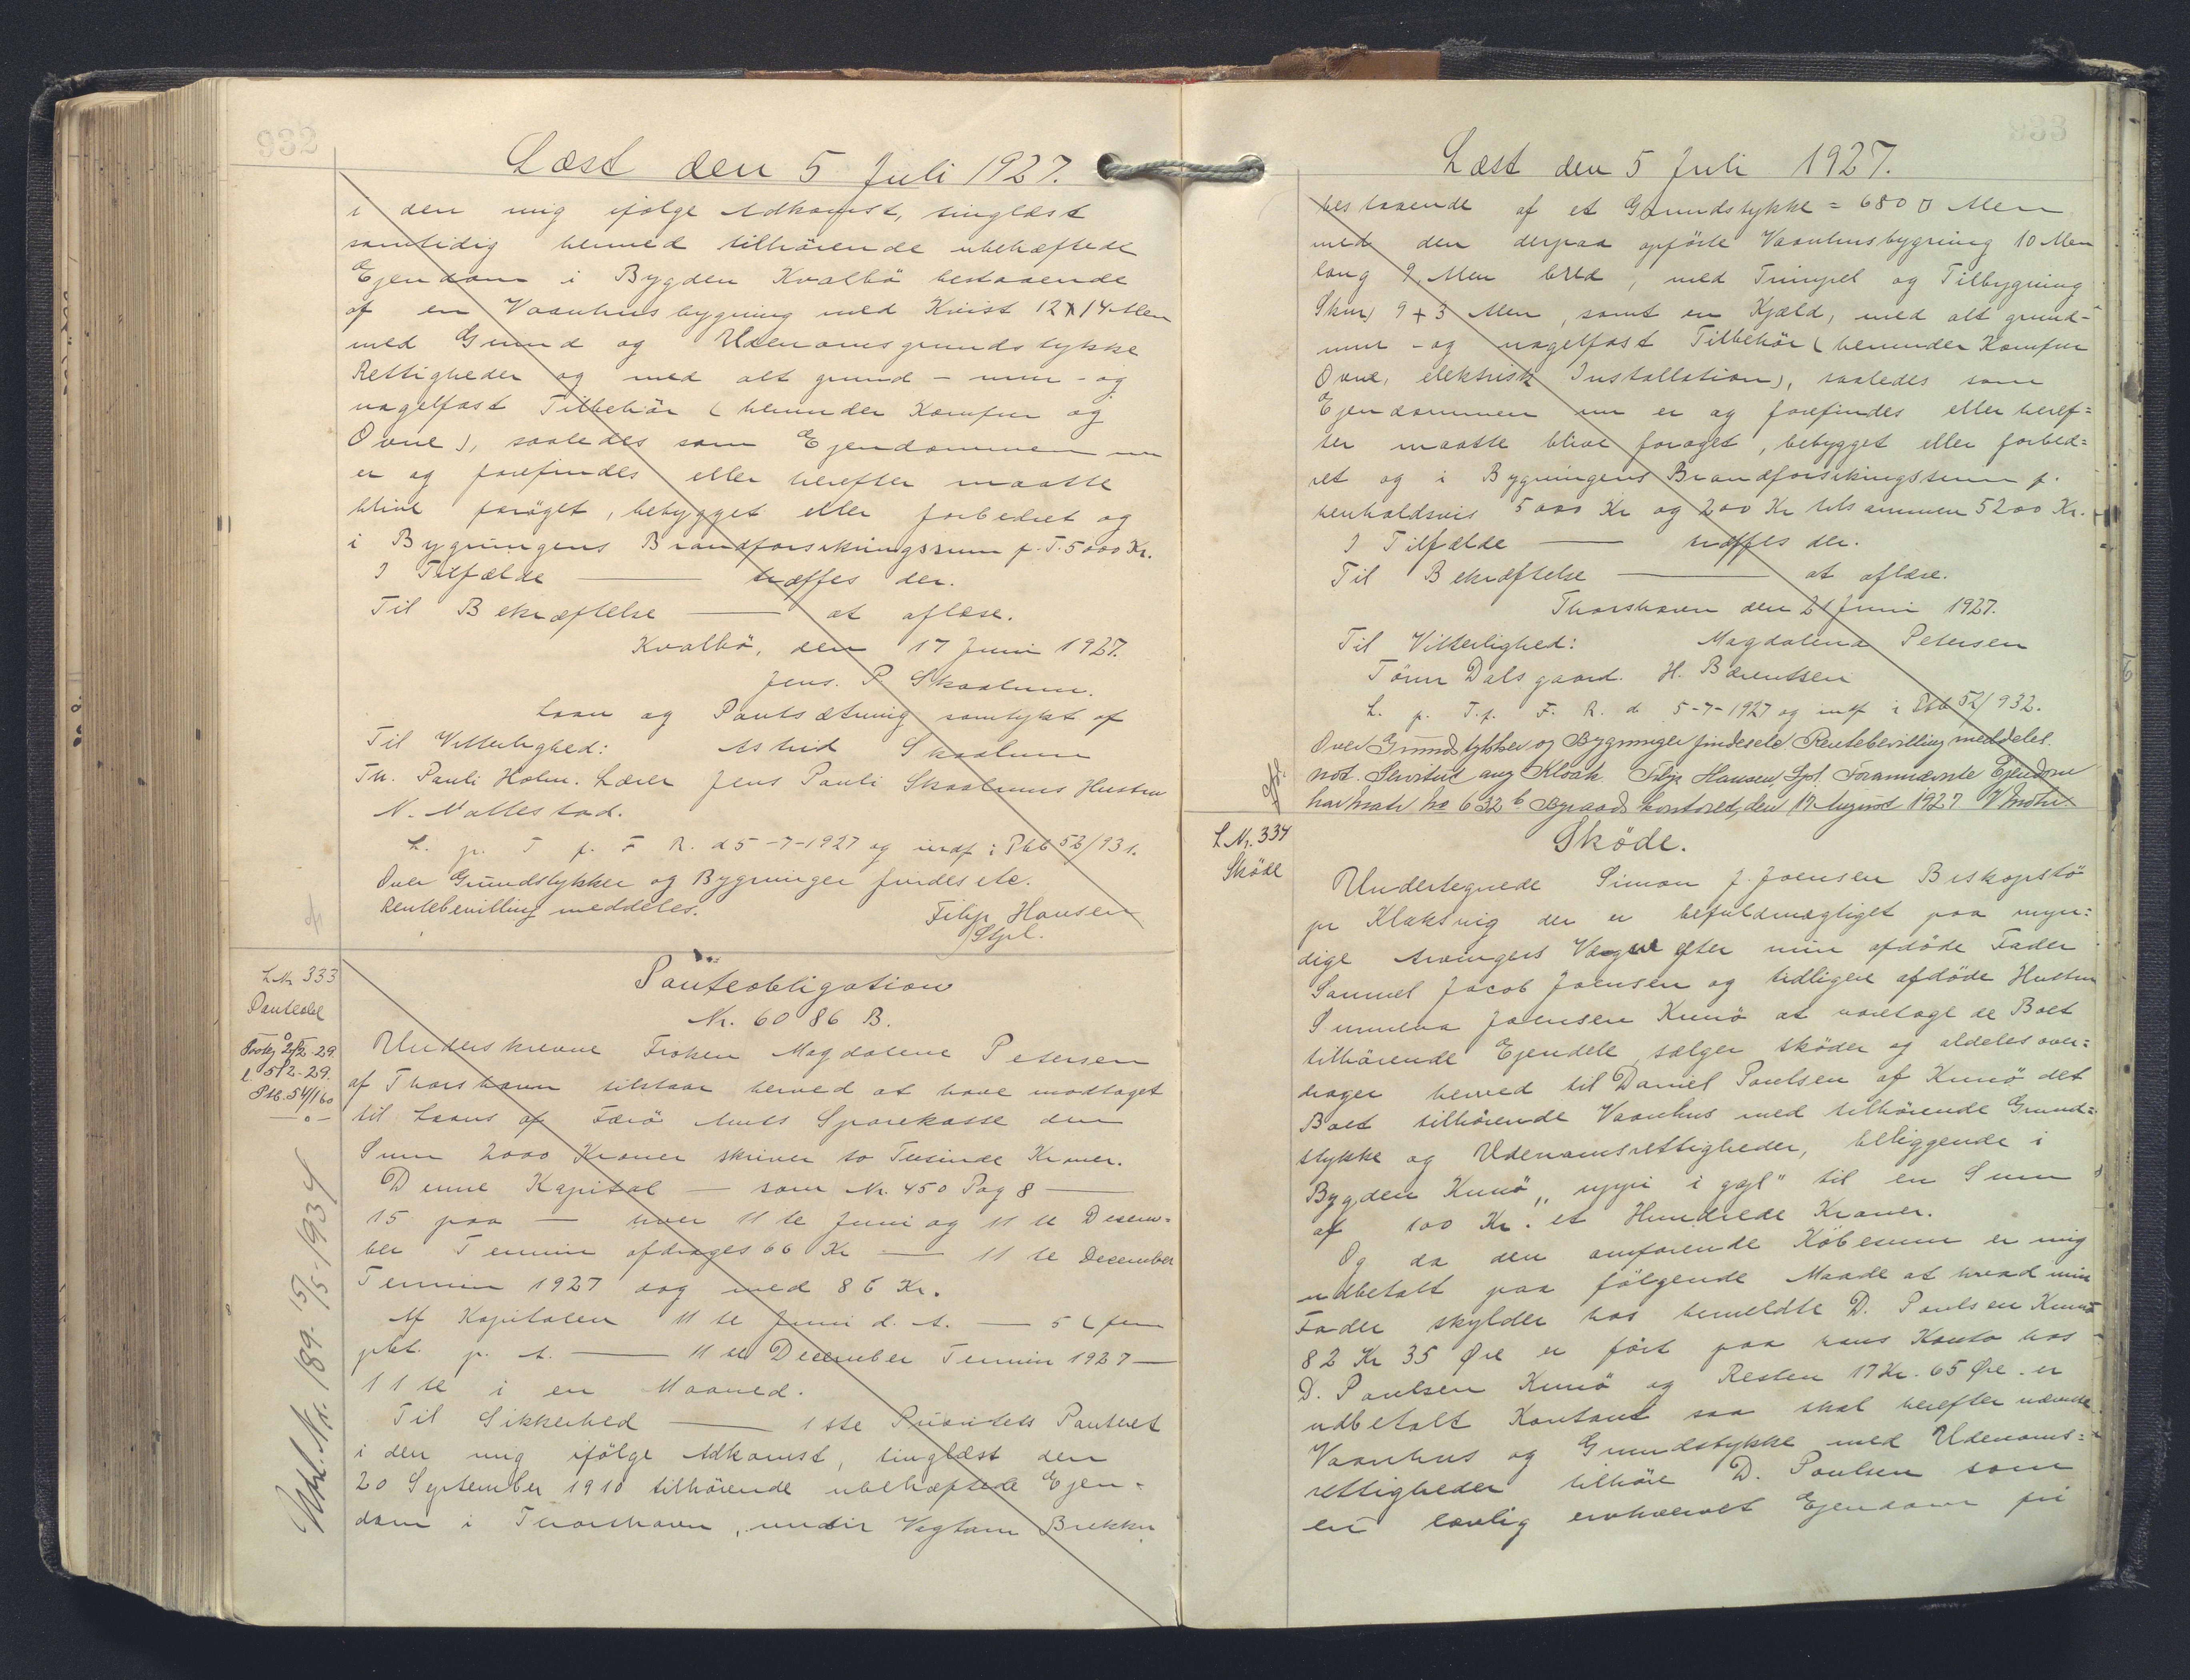 932
Læst den 5 Juli 1927.
i den mig ifølge Adkomst, tinglæst
samtidig hermed tilhörende ubehæftede
Ejendom i Bygden Kvalbö bestaaende
af en Vaanhusbygning med Kvist 12 x 14 Alen
med Grund og Udenomsgrundstykke
Rettigheder og med alt grund - mur - og
nagelfast Tilbehör (herunder Komfur og
Ovne), saaledes som Ejendommen nu
er og forefindes eller herefter maatte
blive foröget, bebygget eller forbedret og
i Bygningens Brandforsikringssum p. T. 5000 Kr.
I Tilfælde — træffes der.
Til Bekræftelse — at aflæse.
Kvalbö, den 17 Juni 1927.
Jens. P. Skaalum.
Laan og Pantsætning samtykt af
Til Vitterlighed: Astrid Skaalum
Th. Pauli Holm. Lærer Jens Pauli Skaalums Hustru
N. Nattestad.
L. p. T. p. F R. d 5-7-1927 og indf i Pbb 52/931.
Over Grundstykker og Bygninger findes etc.
Rentebevilling meddeles.
Filip Hansen
Stpl.
L Nr 333
Panteobl
l. 5/2-29.
Ptb. 54/160
Pantobligation
Nr. 6086 B.
Underskrevne Frøken Magdalene Petersen
af Thorshavn tilstaar herved at have modtaget
til Laans af Færö Amts Sparekasse den
Sum 2000 Kroner skriver to Tusinde Kroner.
Denne Kapital — som Nr. 450 Pag 8 —
15 paa — hver 11 te Juni og 11 te Decem=
ber Termin afdrages 66 Kr — 11 te December
Termin 1927 dog med 86 Kr.
Af Kapitalen 11 te Juni d. A. — 5 (fem
pkt. p. A. — 11 te December Termin 1927 —
11 te i en Maaned.
Til Sikkerhed — 1ste Prioritets Panteret
i den mig ifölge Adkomst, tinglæst den
20 September 1910 tilhörende ubehæftede Ejen=
dom i Thorshavn, under Vagtam Brekku
Nr. 189. 15/5-1934
833
Læst den 5 Juli 1927.
bestaaende af et Grundstykke = 680 □ Alen
med den derpaa opförte Vaanhusbygning 10 Alen
lang 9 Alen bred, med Trimpel og Tilbygning
Skur) 9 + 3 Alen, samt en Kjæld, med alt grund-
mur - og nagelfast Tilbehör (herunder Komfur
Ovne, elektrisk Installation), saaledes som
Ejendommen nu er og forefindes eller heref=
ter maatte blive foröget, bebygget eller forbed=
ret og i Bygningens Brandforsikringssum p.
henholdsvis 5000 Kr og 200 Kr tilsammen 5200 Kr.
I Tilfælde — træffes der.
Til Bekræftelse — at aflæse.
Thorshavn den 21 Juni 1927.
Til Vitterlighed: Magdalena Petersen
Tönur Dalsgaard. H. Bærentsen
L. p. T. p. F. R. d 5-7-1927 og indf i Pbb 52/932.
Over Grundstykker og Bygninger findes etc Rentebevilling meddeles.
not. Servitut ang Kloak. Filip Hansen, Spl. Forannævnte Ejendom
har Matr No 632 b. Byraads kontoret, den 17 August 1927
L Nr. 334
Sköde
Sköde.
Undertegnede Simon J. Joensen Biskopstö
pr Klaksvig der er befuldmægtiget paa myn=
dige Arvingers Vegne efter min afdöde Fader
Samuel Jacob Joensen og tidligere afdöde Hustru
Sunneva Joensen Kunö at varetage de Boet
tilhörende Ejendele, sælger sköder og aldeles over=
drager herved til Daniel Poulsen af Kunö det
Boet tilhörende Vaanhus med tilhörende Grund=
stykke og Udenomsrettigheder, beliggende i
Bygden Kunö „uppi i gøl" til en Sum
af 100 Kr. et Hundrede Kroner.
Og da den omförende Köbesum er mig
udbetalt paa fölgende Maade at hvad min
Fader skylder hos bemeldte D. Poulsen Kunö
82 Kr 35 Øre er fört paa hans Konto hos
D. Poulsen Kunö og Resten 17 Kr. 65 Øre. er
udbetalt Kontant saa skal herefter nævnte
Vaanhus og Grundstykke med Udenoms=
rettigheder tilhöre D. Poulsen som
en lovlig erhvervet Ejendom fri